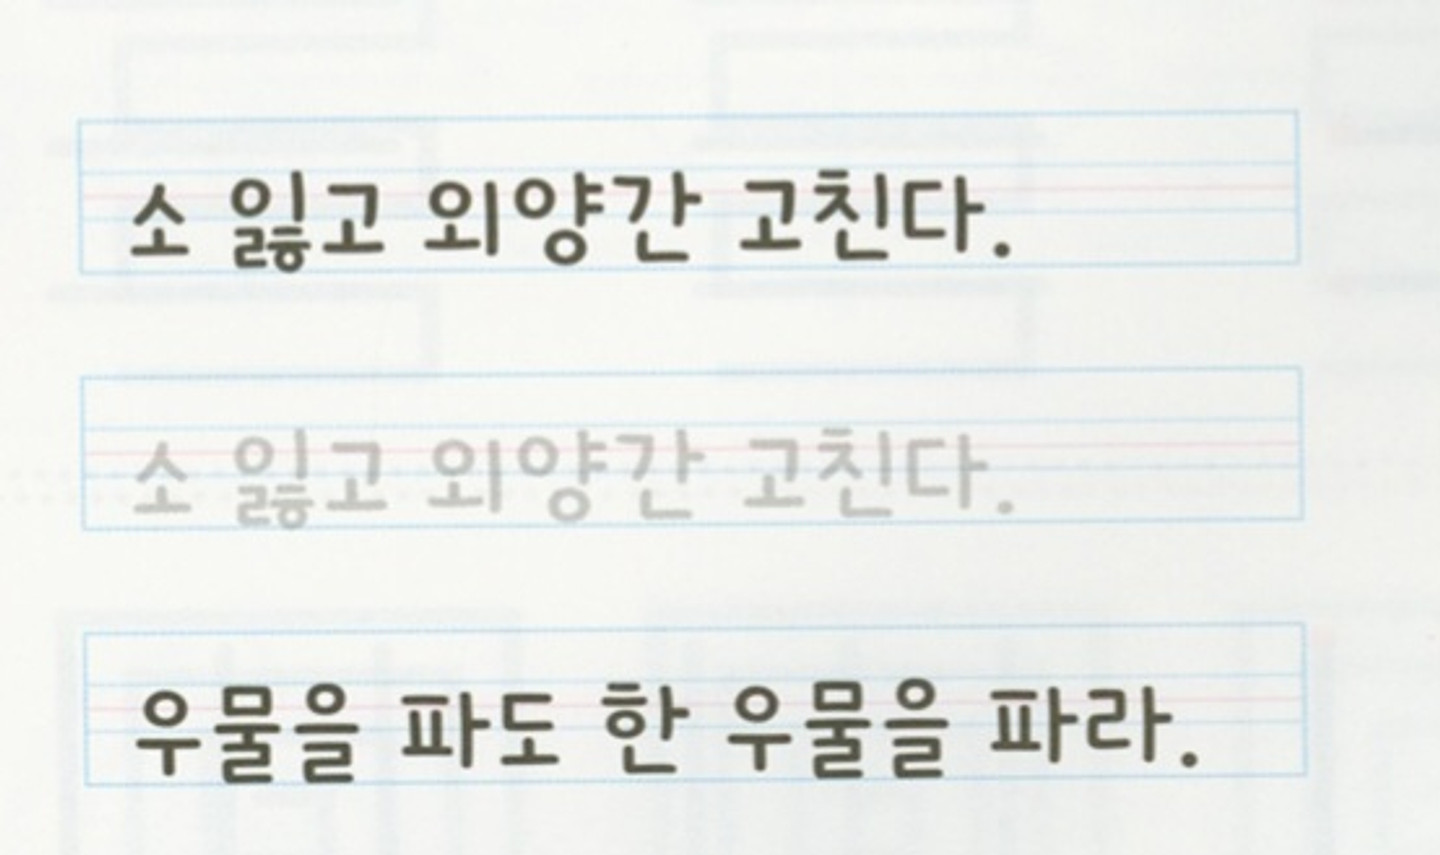 소 잃고 외양간 고친다.
소 잃고 외양간 고친다.
우물을 파도 한 우물을 파라.